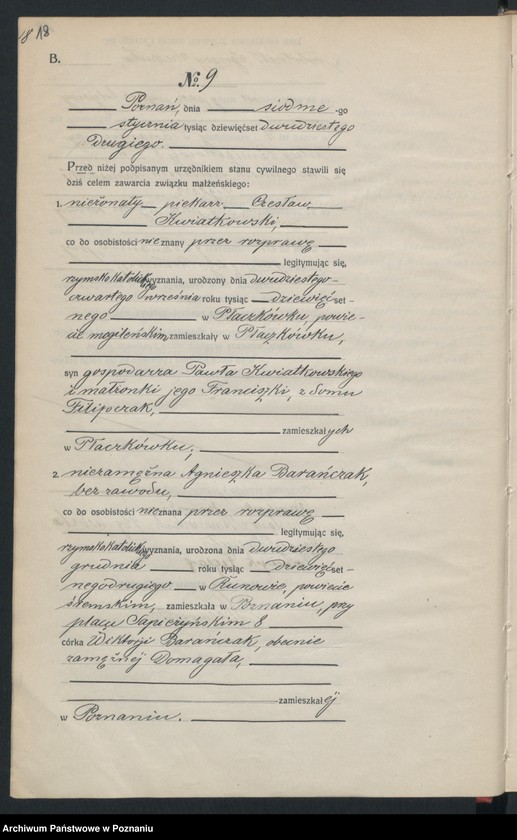 18 18
B.
№ 9
Poznań, dnia siódme -go
stycznia tysiąc dziewięćset dwudziestego
drugiego.
Przed niżej podpisanym urzędnikiem stanu cywilnego stawili się
dziś celem zawarcia związku małżeńskiego:
1. nieżonaty piekarz Czesław
Kwiatkowski,
co do osobistości nieznany przez rozprawę
legitymując się,
rzymskokatolickiego wyznania, urodzony dnia dwudziestego
czwartego września roku tysiąc dziewięćset-
nego w Płaczkówku, powie-
cie mogileńskim, zamieszkały w Płaczkówku,
syn gospodarza Pawła Kwiatkowskiego
i małżonki jego Franciszki, z domu
Filipczak,
zamieszkałych
w Płaczkówku;
2. niezamężna Agnieszka Barańczak,
bez zawodu,
co do osobistości nieznana przez rozprawę
legitymując się,
rzymskokatolickiego wyznania, urodzona dnia dwudziestego
grudnia roku tysiąc dziewięćset-
negodrugiego w Kunowie, powiecie
śremskim, zamieszkała w Poznaniu, przy
placu Sapieżyńskim 8
córka Wiktorji Barańczak, obecnie
zamężnej Domagała,
zamieszkałej
w Poznaniu.
Archiwum Państwowe w Poznaniu